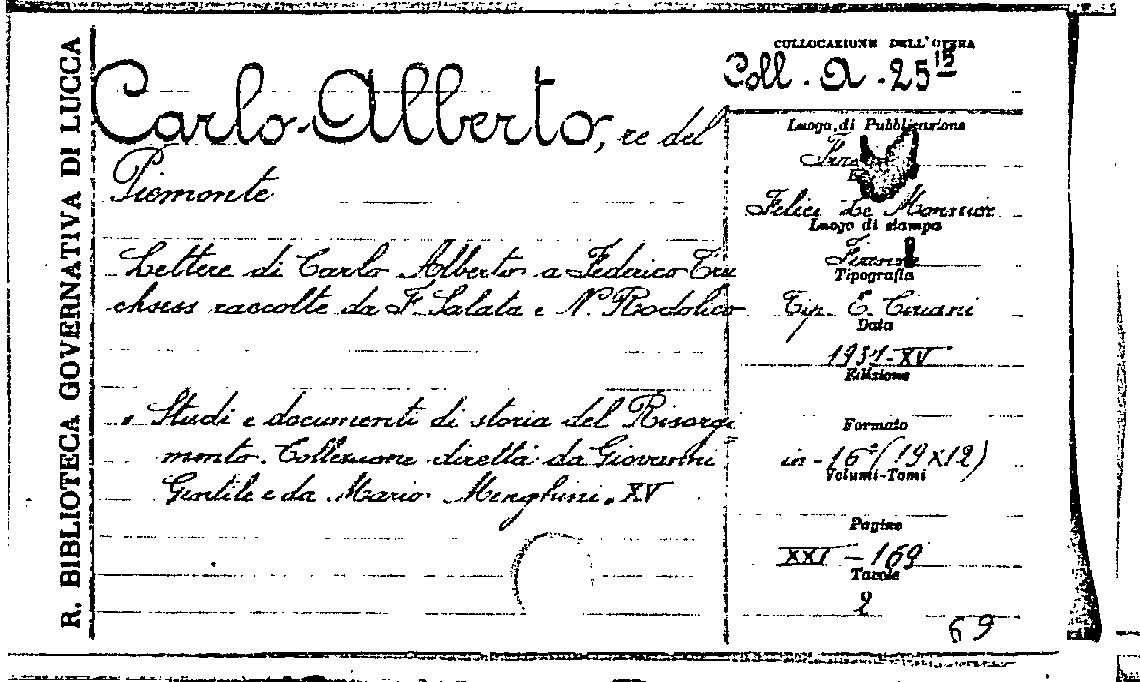 R. BIBLIOTECA GOVERNATIVA DI LUCCA
Carlo Alberto, re del
Piemonte
Lettere di Carlo Alberto a Federico Tru
chsess raccolte da F. Salata e N. Rodolico
" Studi e documenti di storia del Risorgi
mento. Collezione diretta da Giovanni
Gentile e da Mario Menghini. XV
COLLOCAZIONE DELL'OPERA
Coll. A. 25 15
Luogo di Pubblicazione
Felice Le Monnier
Luogo di stampa
Firenze
Tipografia
Tip. E.
Data
1937-XV
Edizione
Formato
in-16° (19x12)
Volumi-Tomi
Pagine
XXI - 169
Tavole
2
69